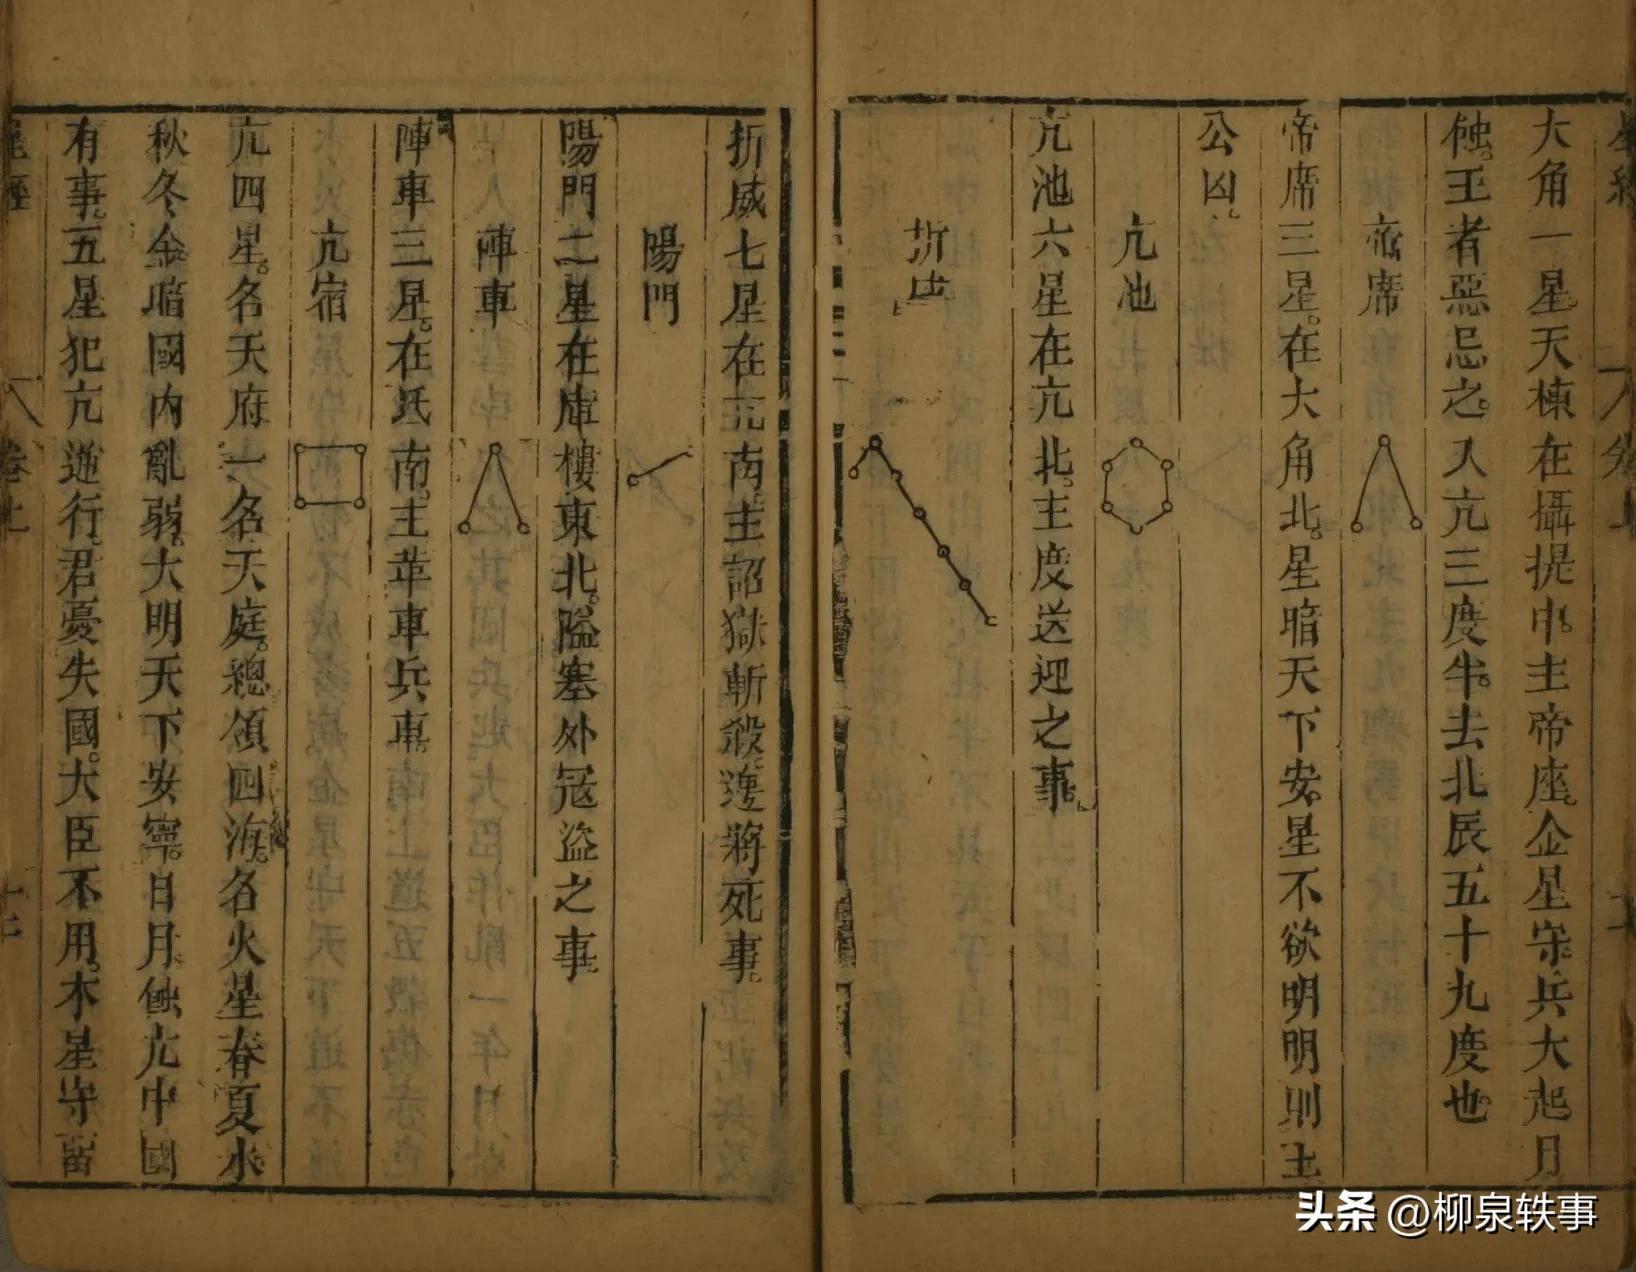 大角一星天棟在攝提中。主帝座。金星守。兵大起。月
蝕。王者惡忌之。入亢三度半。去北辰五十九度也
帝席
帝席三星。在大角北。星暗天下安。星不欲明。明則王
公凶。
亢池
亢池六星在亢北。主度送迎之事。
折威
折威七星在亢南。主詔獄斬殺。邊將死事。
陽門
陽門二星在庫樓東北。隘塞外冦盜之事。
陣車
陣車三星。在氐南。主革車兵車。
亢宿
亢四星。名天府。一名天庭。總領四海。名火星春夏水
秋冬金。暗國內亂弱。大明天下安寧。日月蝕亢中國
有事。五星犯亢逆行。君憂失國。大臣不用。木星守留
卷上
头条 @柳泉轶事